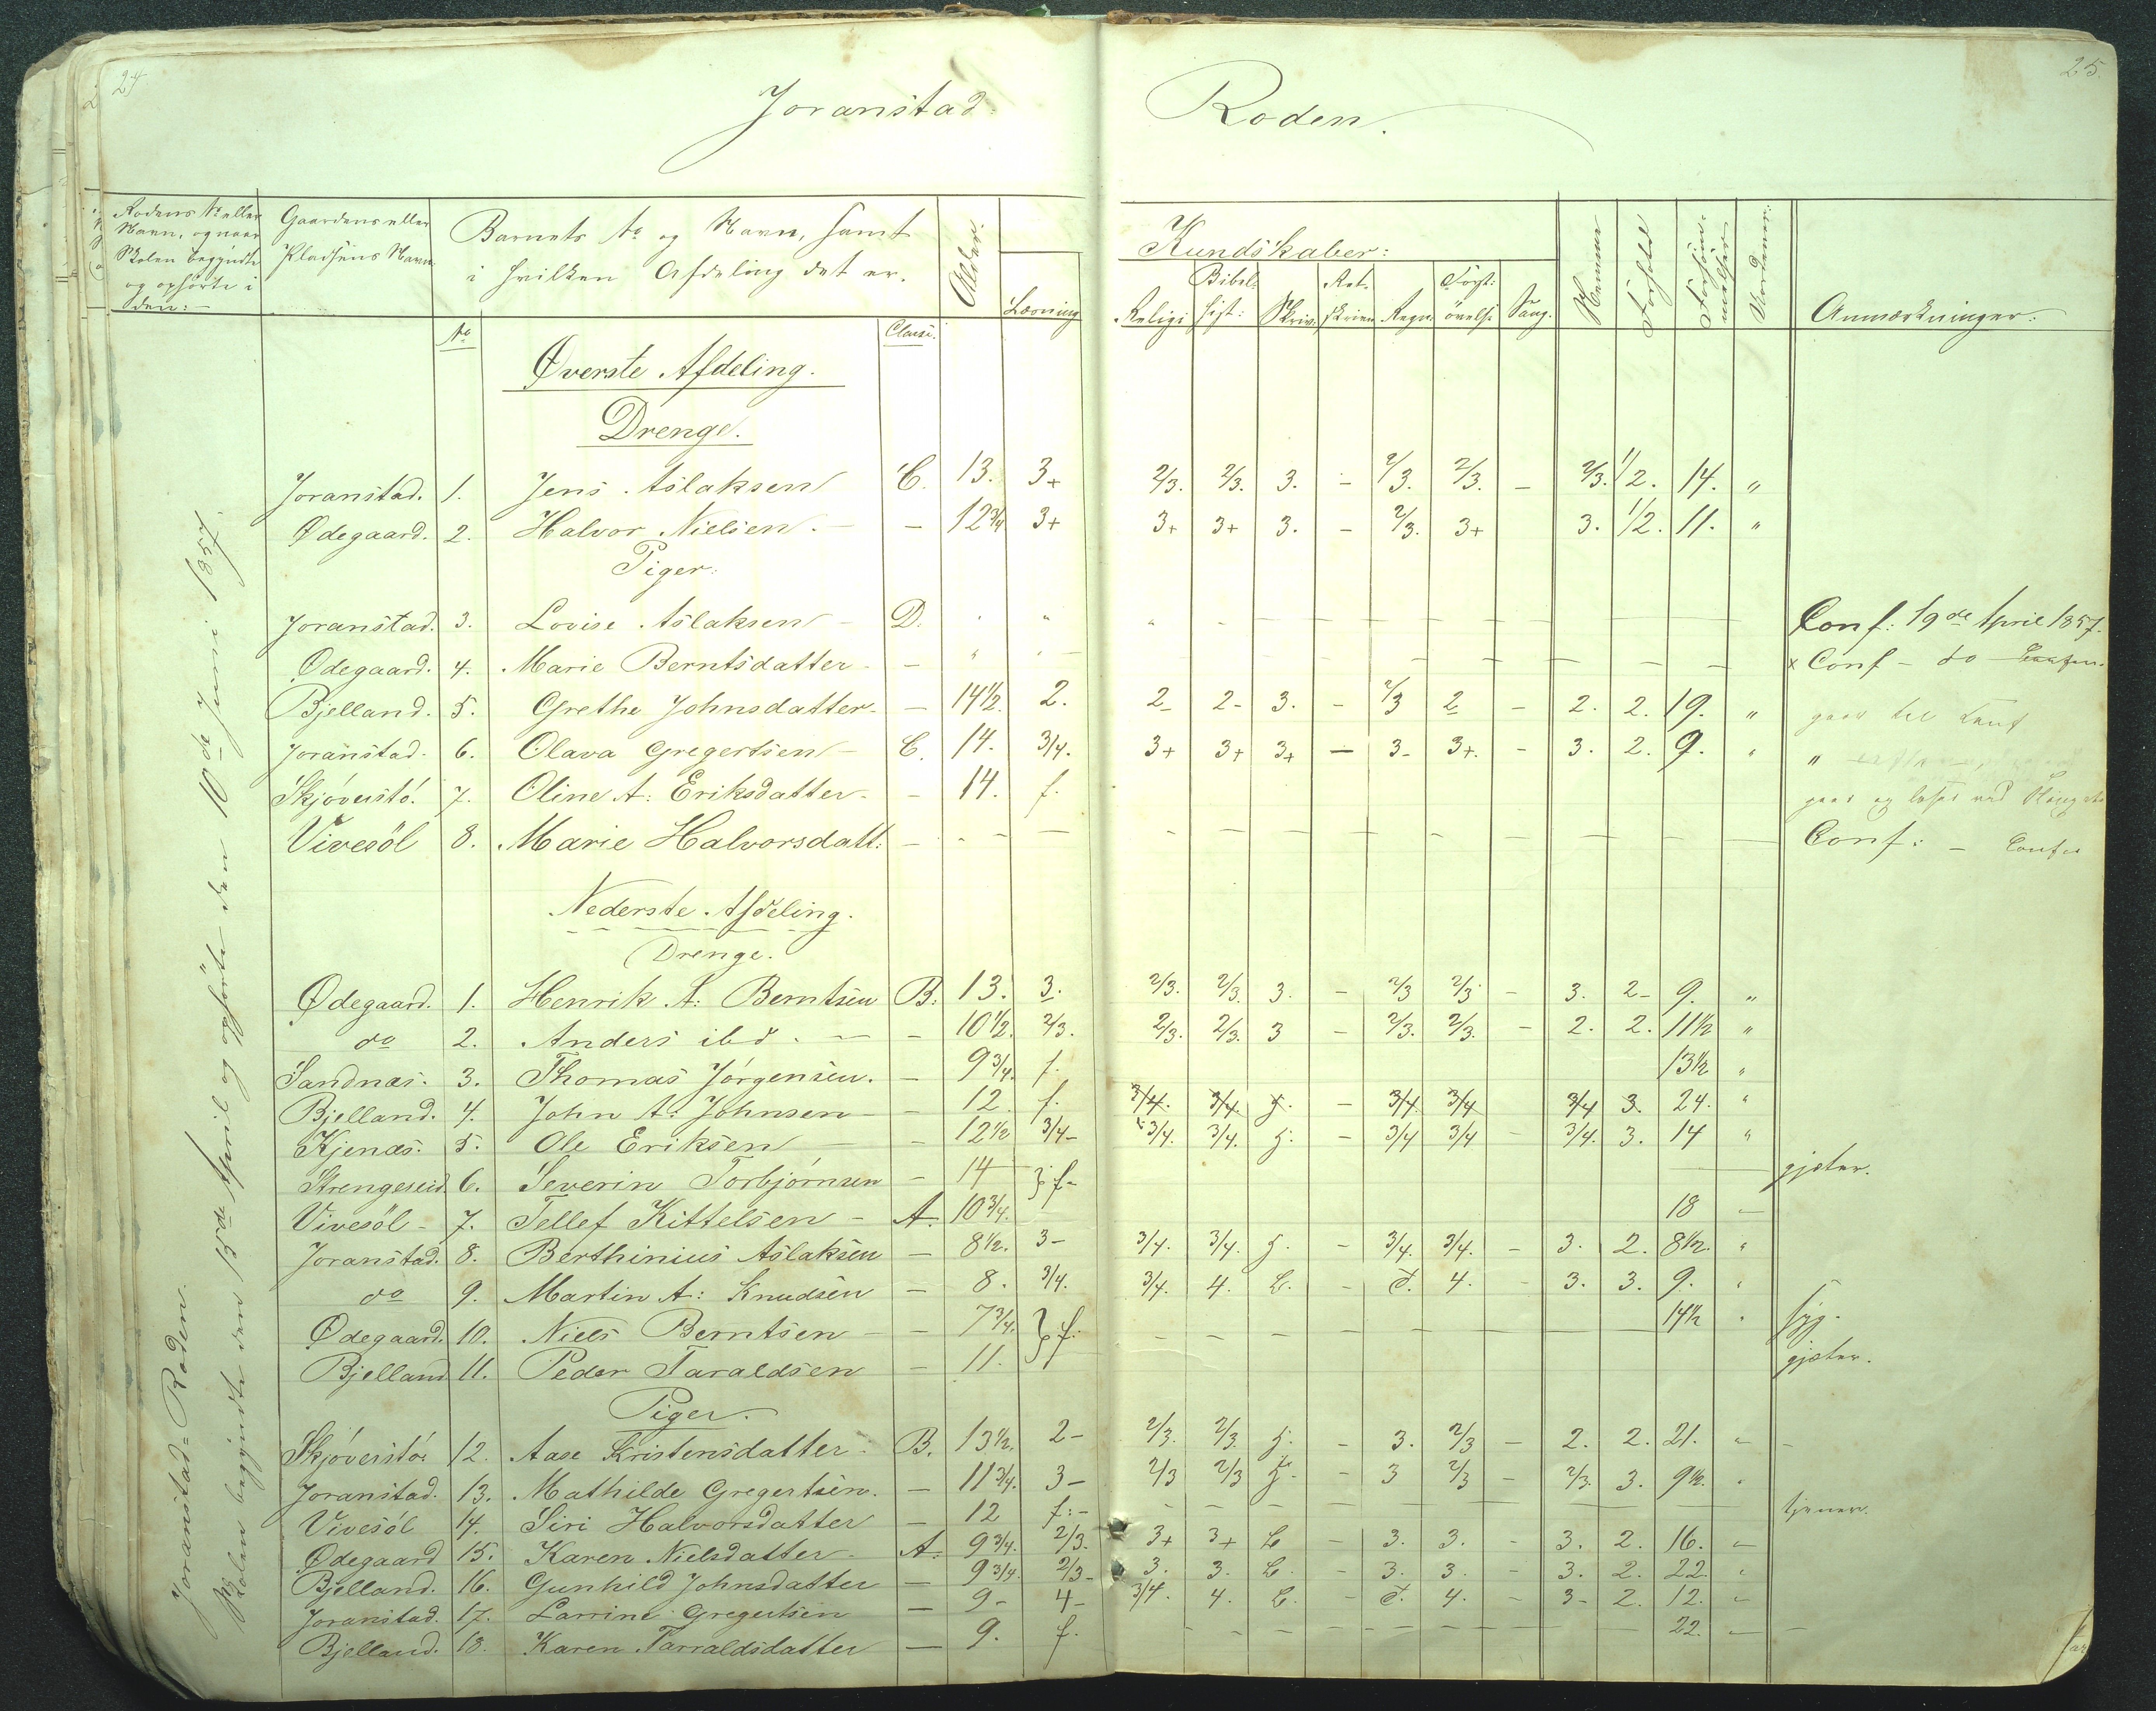 24
25.
Joranstad= Roden.
Rodens No eller Navn, og naar Skolen begyndte og ophørte i den:-
Gaardens eller Pladsens Navn
Barnets No og Navn, samt i hvilken Afdeling det er.
Alder.
Kundskaber:
Læsning
Religi
Bibel. hist:
Skriv.
Ret. skrivn
Regn.
Forst: øvelse
Sang.
Nemme
Forhold
Forsømmelser
Anmærkninger:
No
Classe.
Øverste Afdeling.
Drenge.
Joranstad. 1. Jens Aslaksen C. 13. 3+ 2/3. 2/3. 3. - 2/3. 2/3. - 2/3. 1/2. 14. "
Ødegaard. 2. Halvor Nielsen. - - 12 3/4 3+ 3+ 3+ 3. - 2/3. 3+ 3. 1/2. 11. "
Piger:
Joranstad. 3. Lovise Aslaksen - D. Conf: 19de April 1857.
Ødegaard. 4. Marie Berntsdatter - - x Conf - do
Bjelland. 5. Grethe Johnsdatter - - 14 1/2. 2. 2- 2- 3. - 2/3 2 - 2. 2. 19. " gaar til
Joranstad. 6. Olava Gregertsen - C. 14. 3/4. 3+ 3+ 3+ - 3- 3+. - 3. 2. 9. "
Skjöverstö. 7. Oline A: Eriksdatter - - 14. f. gaar og
Vivesöl 8. Marie Halvorsdatt: - - - Conf: -
Nederste Afdeling.
Drenge.
Ødegaard. 1. Henrik A: Berntsen B. 13. 3. 2/3. 2/3. 3. - 2/3 2/3 - 3. 2- 9. "
do 2. Anders ibd. - - 10 1/2. 2/3. 2/3. 2/3. 3 - 2/3. 2/3. - 2. 2. 11 1/2 "
Sandnæs. 3. Thomas Jörgensen. - 9 3/4. f. 13 1/2 "
Bjelland. 4. John A: Johnsen - - 12. f. 3/4. 3/4. g. - 3/4 3/4 3/4 3. 24. "
Kjenæs. 5. Ole Eriksen - - 12 1/2 3/4- 3/4. 3/4. g. - 3/4 3/4 - 3/4. 3. 14 "
Strengereid 6. Severin Torbjörnsen - 14 } f- gjæter.
Vivesöl - 7. Tellef Kittelsen - A. 10 3/4. 18 -
Joranstad. 8. Berthinius Aslaksen - 8 1/2. 3- 3/4. 3/4. g. - 3/4. 3/4. - 3. 2. 8 1/2. "
do 9. Martin A: Knudsen - 8. 3/4. 3/4. 4. L. - d. 4. - 3. 3. 9. "
Ødegaard. 10. Niels Berntsen - - 7 3/4. } f. 14 1/2 syg.
Bjelland 11. Peder Taraldsen - 11. gjæter.
Piger.
Skjöverstö. 12. Aase Kristensdatter - B. 13 1/2. 2- 2/3. 2/3. g. - 3. 2/3 - 2. 2. 21. -
Joranstad. 13. Mathilde Gregertsen. - 11 3/4. 3- 2/3 2/3 g. - 3 2/3 - 2/3. 3. 9 1/2.
Vivesöl 14. Siri Halvorsdatter - 12 f:- tjener.
Ødegaard 15. Karen Nielsdatter - A. 9 3/4. 2/3. 3+ 3+ L - 3. 3. - 3. 2. 16. -
Bjelland. 16. Gunhild Johnsdatter - 9 3/4. 2/3- 3. 3. L. - 3. 3. - 3. 2. 22.
Joranstad. 17. Larrine Gregertsen - 9- 4- 3/4. 4. L. - d. 4. - 3- 2. 12. -
Bjelland. 18. Karen Tarraldsdatter - 9. f. 22. -
Joranstad= Roden.
Skolen begyndte den 15de April og ophørte den 10de Juni 1857.